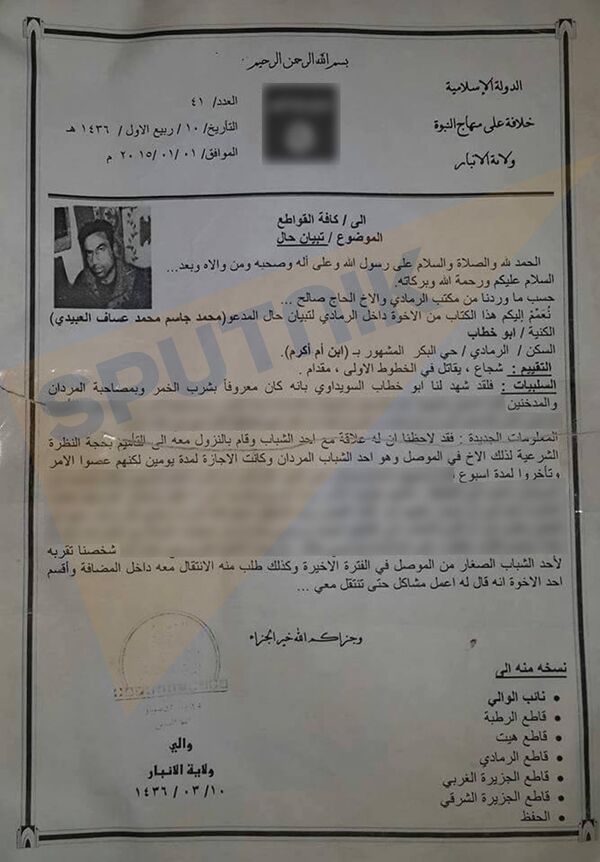 بسم الله الرحمن الرحيم
الدولة الإسلامية
خلافة على منهاج النبوة
ولاية الانبار
العدد/ ٤١
التأريخ/ ١٠ / ربيع الاول / ١٤٣٦ هـ
الموافق/ ٠١ / ٠١ / ٢٠١٥ م
الى / كافة القواطع
الموضوع / تبيان حال
الحمد لله والصلاة والسلام على رسول الله وعلى أله وصحبه ومن والاه وبعد...
السلام عليكم ورحمة الله وبركاته.
حسب ما وردنا من مكتب الرمادي والاخ الحاج صالح ...
نُعمّمُ إليكم هذا الكتاب من الاخوة داخل الرمادي لتبيان حال المدعو(محمد جاسم محمد عساف العبيدي)
الكنية / ابو خطاب
السكن / الرمادي / حي البكر المشهور بـ (ابن أم أكرم).
التقييم : شجاع ، يقاتل في الخطوط الاولى ، مقدام .
السلبيات : فلقد شهد لنا ابو خطاب السويداوي بانه كان معروفاً بشرب الخمر وبمصاحبة المردان
والمدخنين
المعلومات الجديدة : فقد لاحظنا ان له علاقة مع احد الشباب وقام بالنزول معه الى القائم بحجة النظرة
الشرعية لذلك الاخ في الموصل وهو احد الشباب المردان وكانت الاجازة لمدة يومين لكنهم عصوا الامر
وتأخروا لمدة اسبوع ،
شخصنا تقربه
لأحد الشباب الصغار من الموصل في الفترة الاخيرة وكذلك طلب منه الانتقال معه داخل المضافة وأقسم
احد الاخوة انه قال له اعمل مشاكل حتى تنتقل معي ...
وجزاكم الله خير الجزاء
نسخه منه الى
• نائب الوالي
• قاطع الرطبة
• قاطع هيت
• قاطع الرمادي
• قاطع الجزيرة الغربي
• قاطع الجزيرة الشرقي
• الحفظ
والي
ولاية الانبار
١٠ / ٠٣ / ١٤٣٦
SPUTNIK